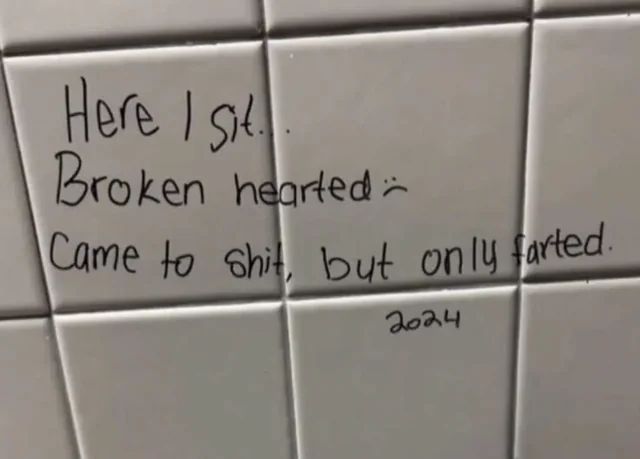 Here I sit...
Broken hearted :(
Came to shit, but only farted.
2024